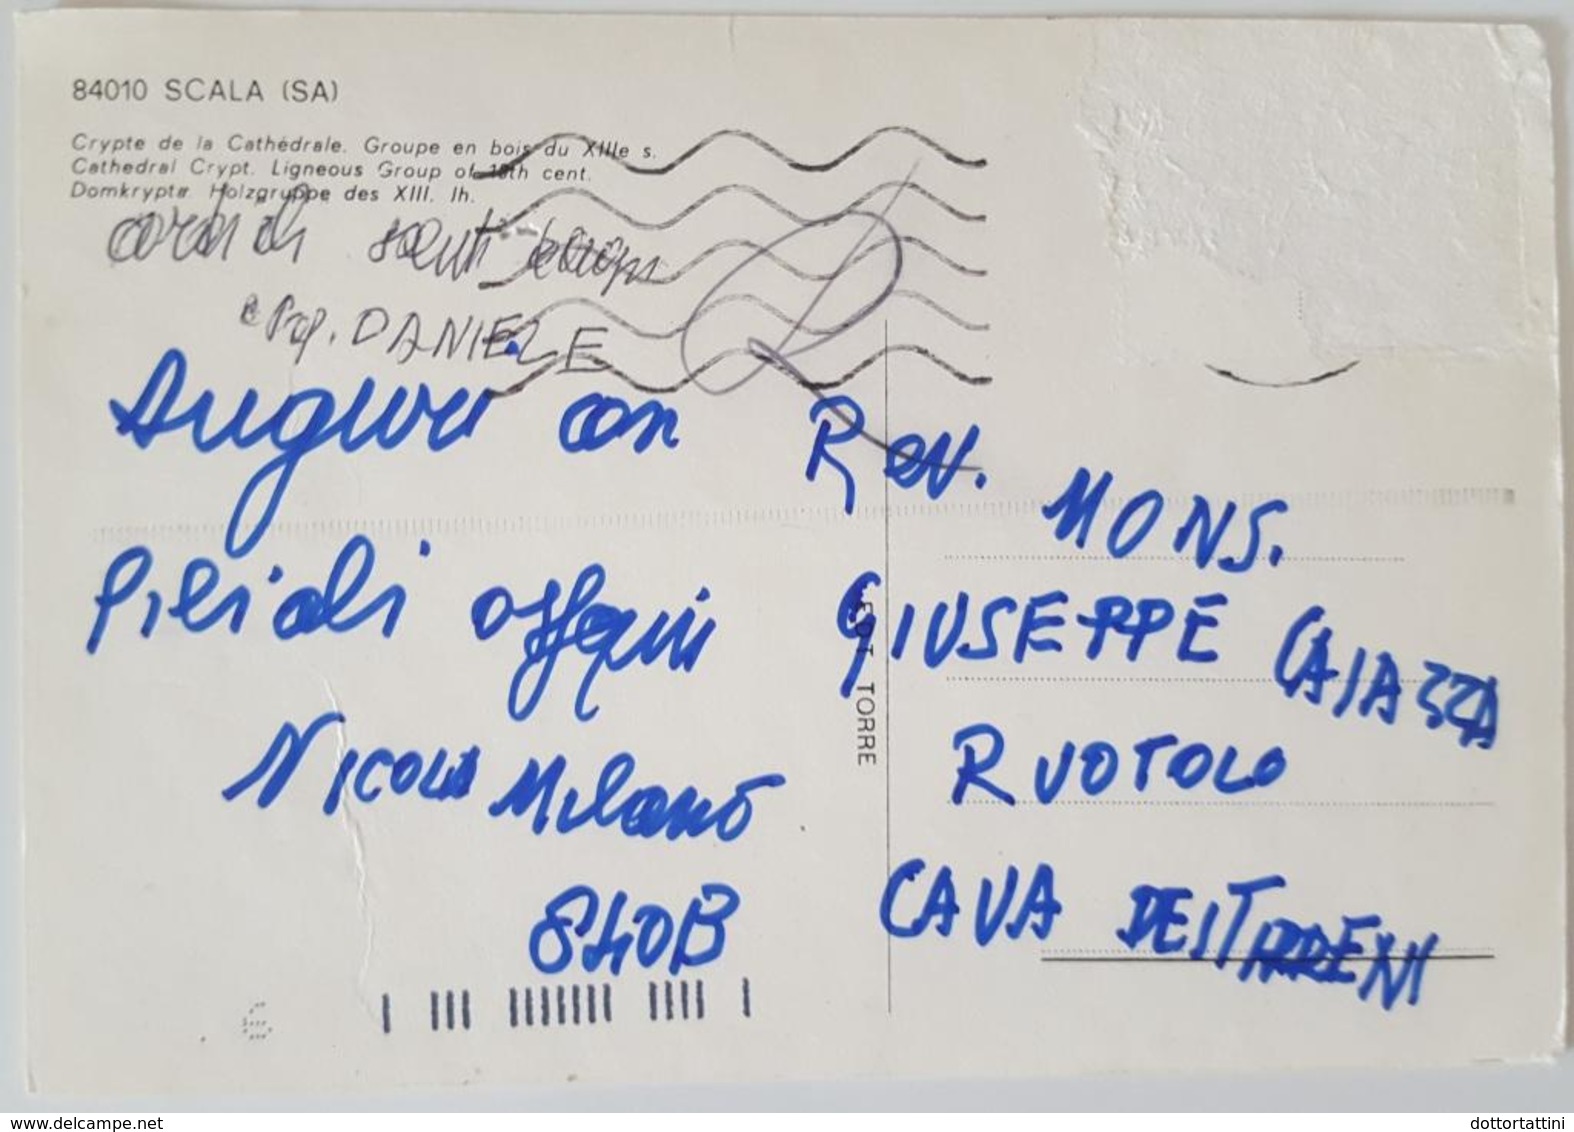 84010 SCALA (SA)
Crypte de la Cathédrale. Groupe en bois du XIIIe s.
Cathedral Crypt. Ligneous Group of 13th cent.
Domkrypta Holzgruppe des XIII. Ih.
cordiali saluti
DANIELE
Auguri con
filiali ossequi
Nicola Milano
EDIT TORRE
Rev. MONS.
GIUSEPPE CAIAZZA
RUOTOLO
CAVA DEI TIRRENI
www.delcampe.net
dottortattini